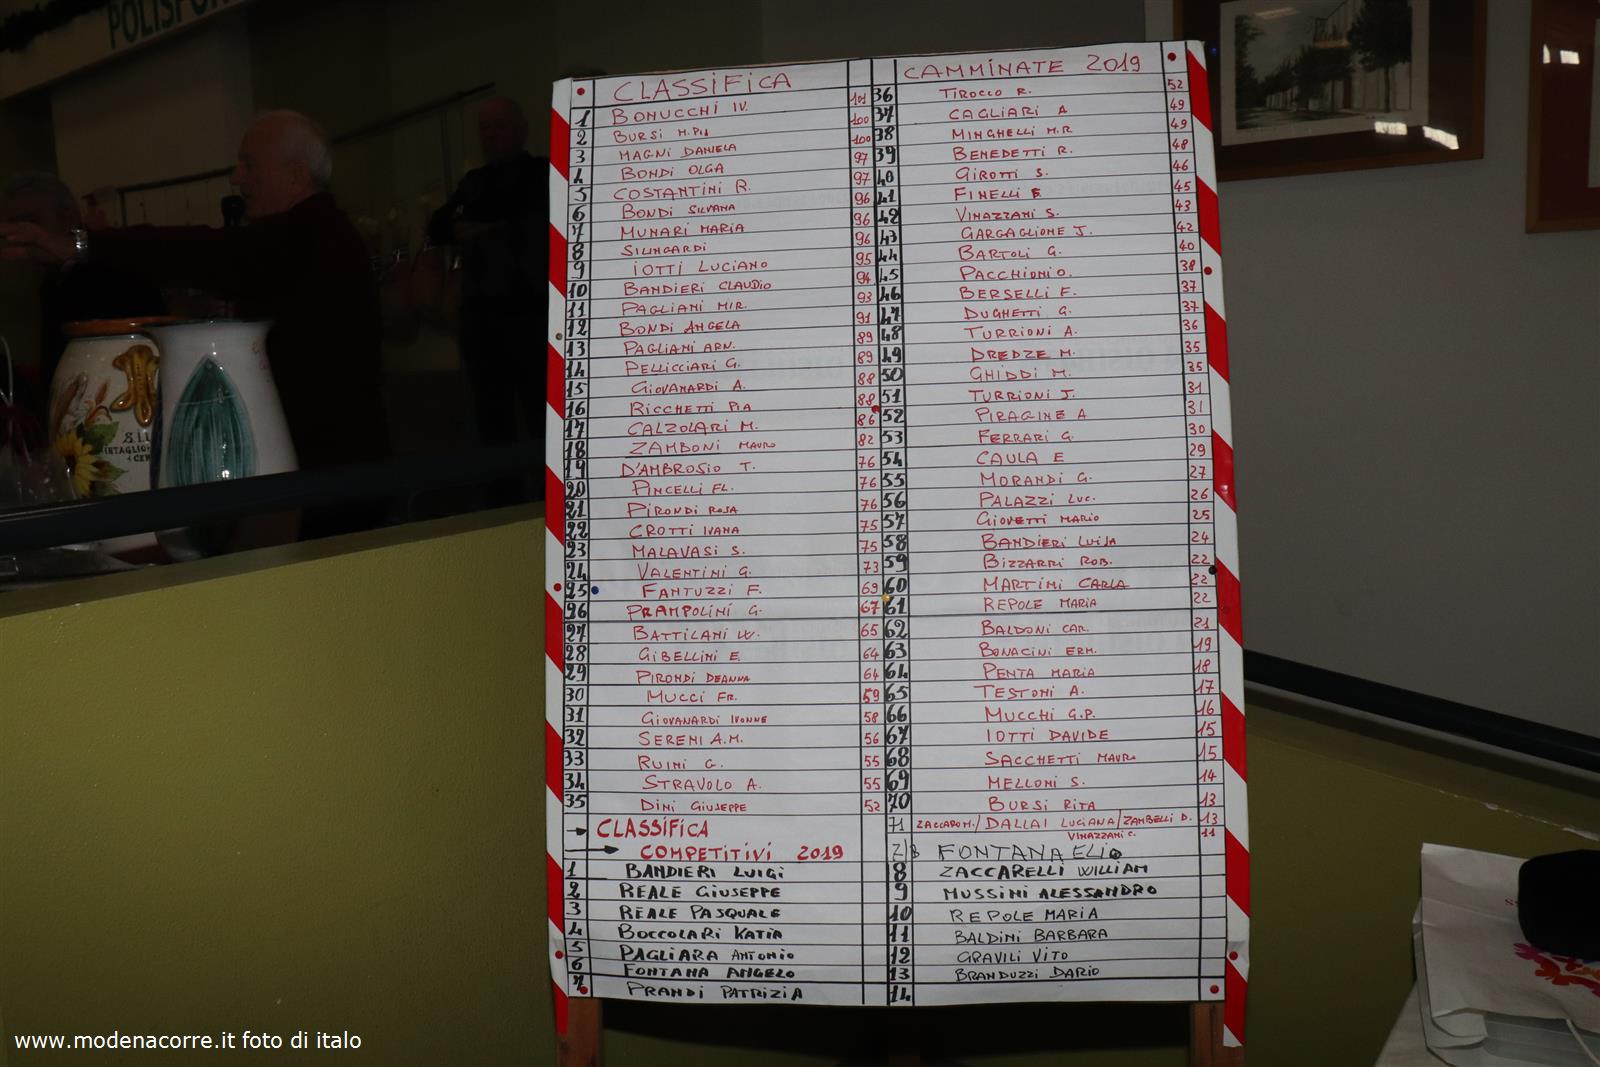 POLISPOR
CLASSIFICA
1 BONUCCHI IV. 101
2 BURSI M.PIA 100
3 MAGNI DANIELA 100
4 BONDI OLGA 97
5 COSTANTINI R. 97
6 BONDI SILVANA 96
7 MUNARI MARIA 96
8 SILINGARDI 96
9 IOTTI LUCIANO 95
10 BANDIERI CLAUDIO 94
11 PAGLIANI MIR. 93
12 BONDI ANGELA 91
13 PAGLIANI ARN. 89
14 PELLICCIARI G. 89
15 GIOVANARDI A. 88
16 RICCHETTI PIA 88
17 CALZOLARI M. 86
18 ZAMBONI MAURO 82
19 D'AMBROSIO T. 76
20 PINCELLI FL. 76
21 PIRONDI ROSA 76
22 CROTTI IVANA 75
23 MALAVASI S. 75
24 VALENTINI G. 73
25 FANTUZZI F. 69
26 PRAMPOLINI G. 67
27 BATTILANI W. 65
28 GIBELLINI E. 64
29 PIRONDI DEANNA 64
30 MUCCI FR. 59
31 GIOVANARDI IVONNE 58
32 SERENI A.M. 56
33 RUINI G. 55
34 STRAVOLO A. 55
35 DINI GIUSEPPE 52
CAMMINATE 2019
36 TIROCCO R. 52
37 CAGLIARI A 49
38 MINGHELLI M.R. 49
39 BENEDETTI R. 48
40 GIROTTI S. 46
41 FINELLI E 45
42 VINAZZANI S. 43
43 GARGAGLIONE J. 42
44 BARTOLI G. 40
45 PACCHIONI O. 38
46 BERSELLI F. 37
47 DUGHETTI G. 37
48 TURRIONI A. 36
49 DREDZE M. 35
50 GHIDDI M. 35
51 TURRIONI J. 31
52 PIRAGINE A 31
53 FERRARI G. 30
54 CAULA E 29
55 MORANDI G. 27
56 PALAZZI LUC. 26
57 GIOVETTI MARIO 25
58 BANDIERI LUISA 24
59 BIZZARRI ROB. 22
60 MARTINI CARLA 22
61 REPOLE MARIA 22
62 BALDONI CAR. 21
63 BONACINI ERM. 19
64 PENTA MARIA 18
65 TESTONI A. 17
66 MUCCHI G.P. 16
67 IOTTI DAVIDE 15
68 SACCHETTI MAURO 15
69 MELLONI S. 14
70 BURSI RITA 13
71 ZACCARO M./DALLAI LUCIANA/ZAMBELLI D. 13
VINAZZANI C. 11
FONTANA ELIO
CLASSIFICA
COMPETITIVI 2019
1 BANDIERI LUIGI
2 REALE GIUSEPPE
3 REALE PASQUALE
4 BOCCOLARI KATIA
5 PAGLIARA ANTONIO
6 FONTANA ANGELO
7 PRANDI PATRIZIA
8 ZACCARELLI WILLIAM
9 MUSSINI ALESSANDRO
10 REPOLE MARIA
11 BALDINI BARBARA
12 GRAVILI VITO
13 BRANDUZZI DARIO
14
www.modenacorre.it foto di italo